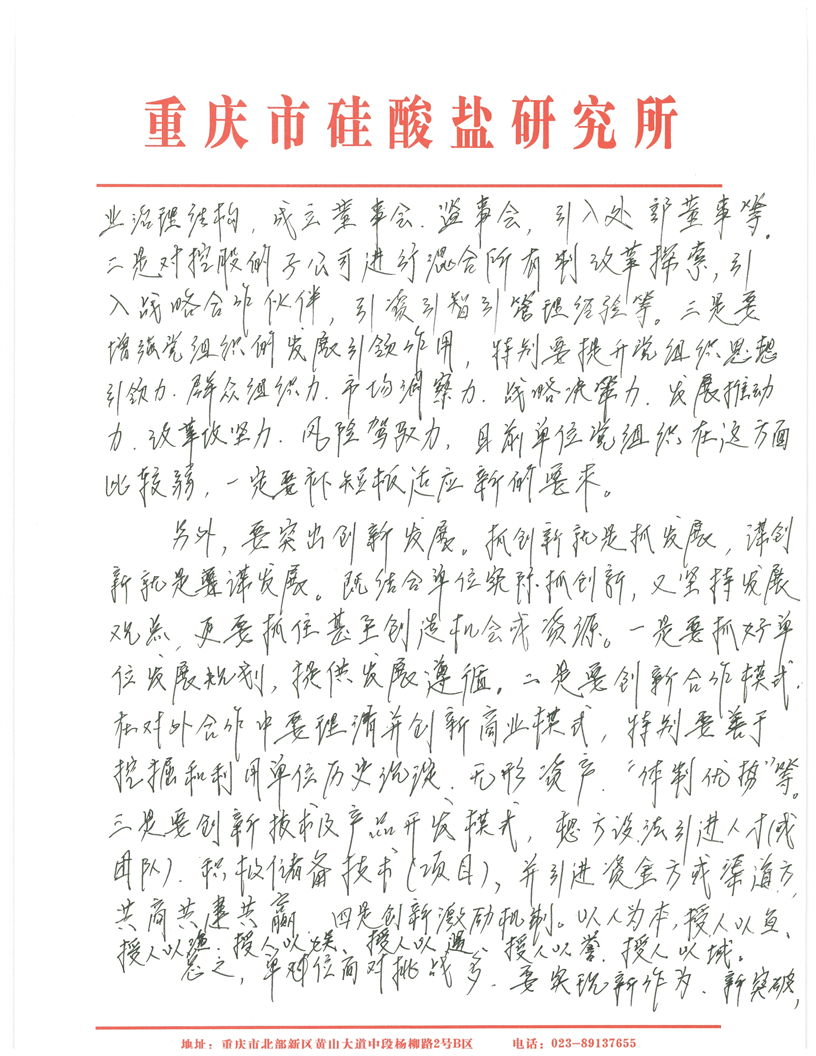 重庆市硅酸盐研究所
业治理结构，成立董事会、监事会，引入外部董事等。
二是对控股的子公司进行混合所有制改革探索，引
入战略合作伙伴，引资引智引管理经验等。三是要
增强党组织的发展引领作用，特别要提升党组织思想
引领力、群众组织力、市场洞察力、战略决策力、发展推动
力、改革攻坚力、风险驾驭力，目前单位党组织在这方面
比较弱，一定要补短板适应新的要求。
另外，要突出创新发展。抓创新就是抓发展，谋创
新就是谋发展。既结合单位实际抓创新，又坚持发展
观点，更要抓住甚至创造机会或资源。一是要抓好单
位发展规划，提供发展遵循。二是要创新合作模式，
在对外合作中要理清并创新商业模式，特别要善于
挖掘和利用单位历史沉淀、无形资产、“体制优势”等。
三是要创新技术及产品开发模式，想方设法引进人才（或
团队）、积极储备技术（项目），并引进资金方或渠道方，
共商共建共赢。四是创新激励机制。以人为本，授人以鱼、
授人以渔、授人以娱、授人以遇、授人以誉、授人以域。
总之，单位面对挑战多，要实现新作为、新突破，
地址：重庆市北部新区黄山大道中段杨柳路2号B区 电话：023-89137655